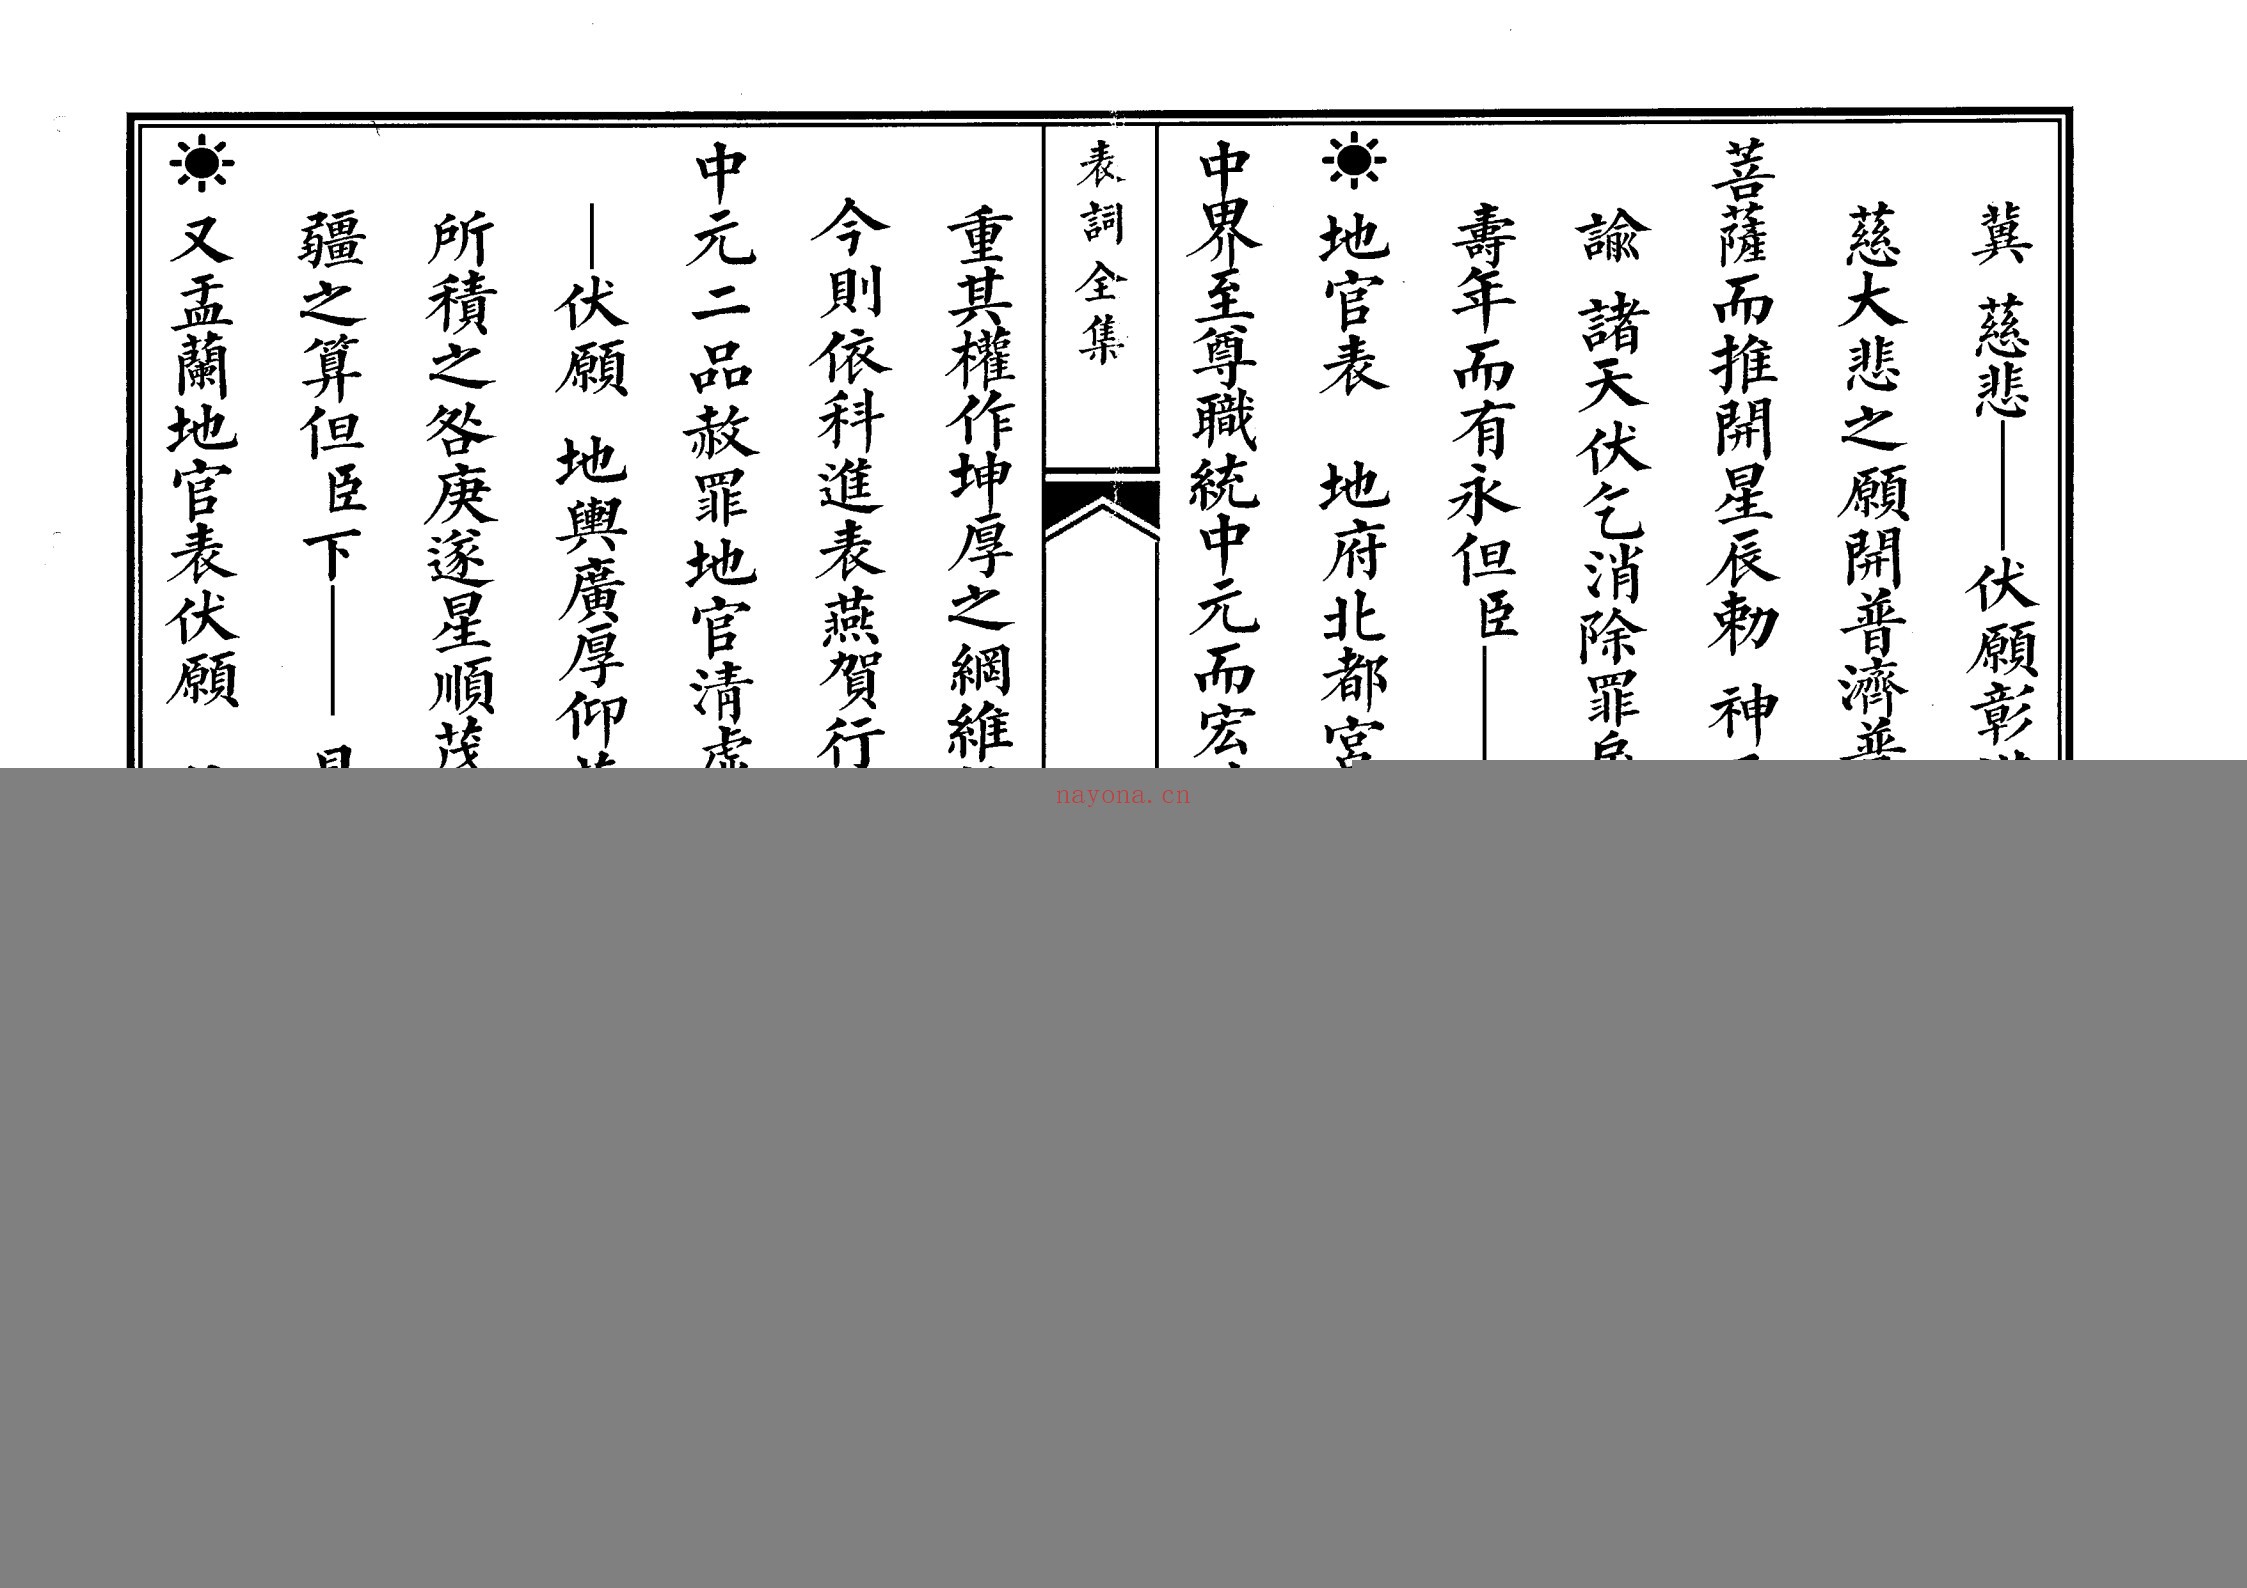 冀 慈悲——伏願彰
慈大悲之願開普濟普
菩薩而推開星辰勅 神
諭 諸天伏乞消除罪
壽年而有永但臣——
地官表 地府北都宮
中界至尊職統中元而宏
表詞全集
重其權作坤厚之綱維
今則依科進表燕賀行
中元二品赦罪地官清虛
—伏願 地輿廣厚仰
所積之咎庚遂星順茂
疆之算但臣下——
又盂蘭地官表伏願
nayona.cn